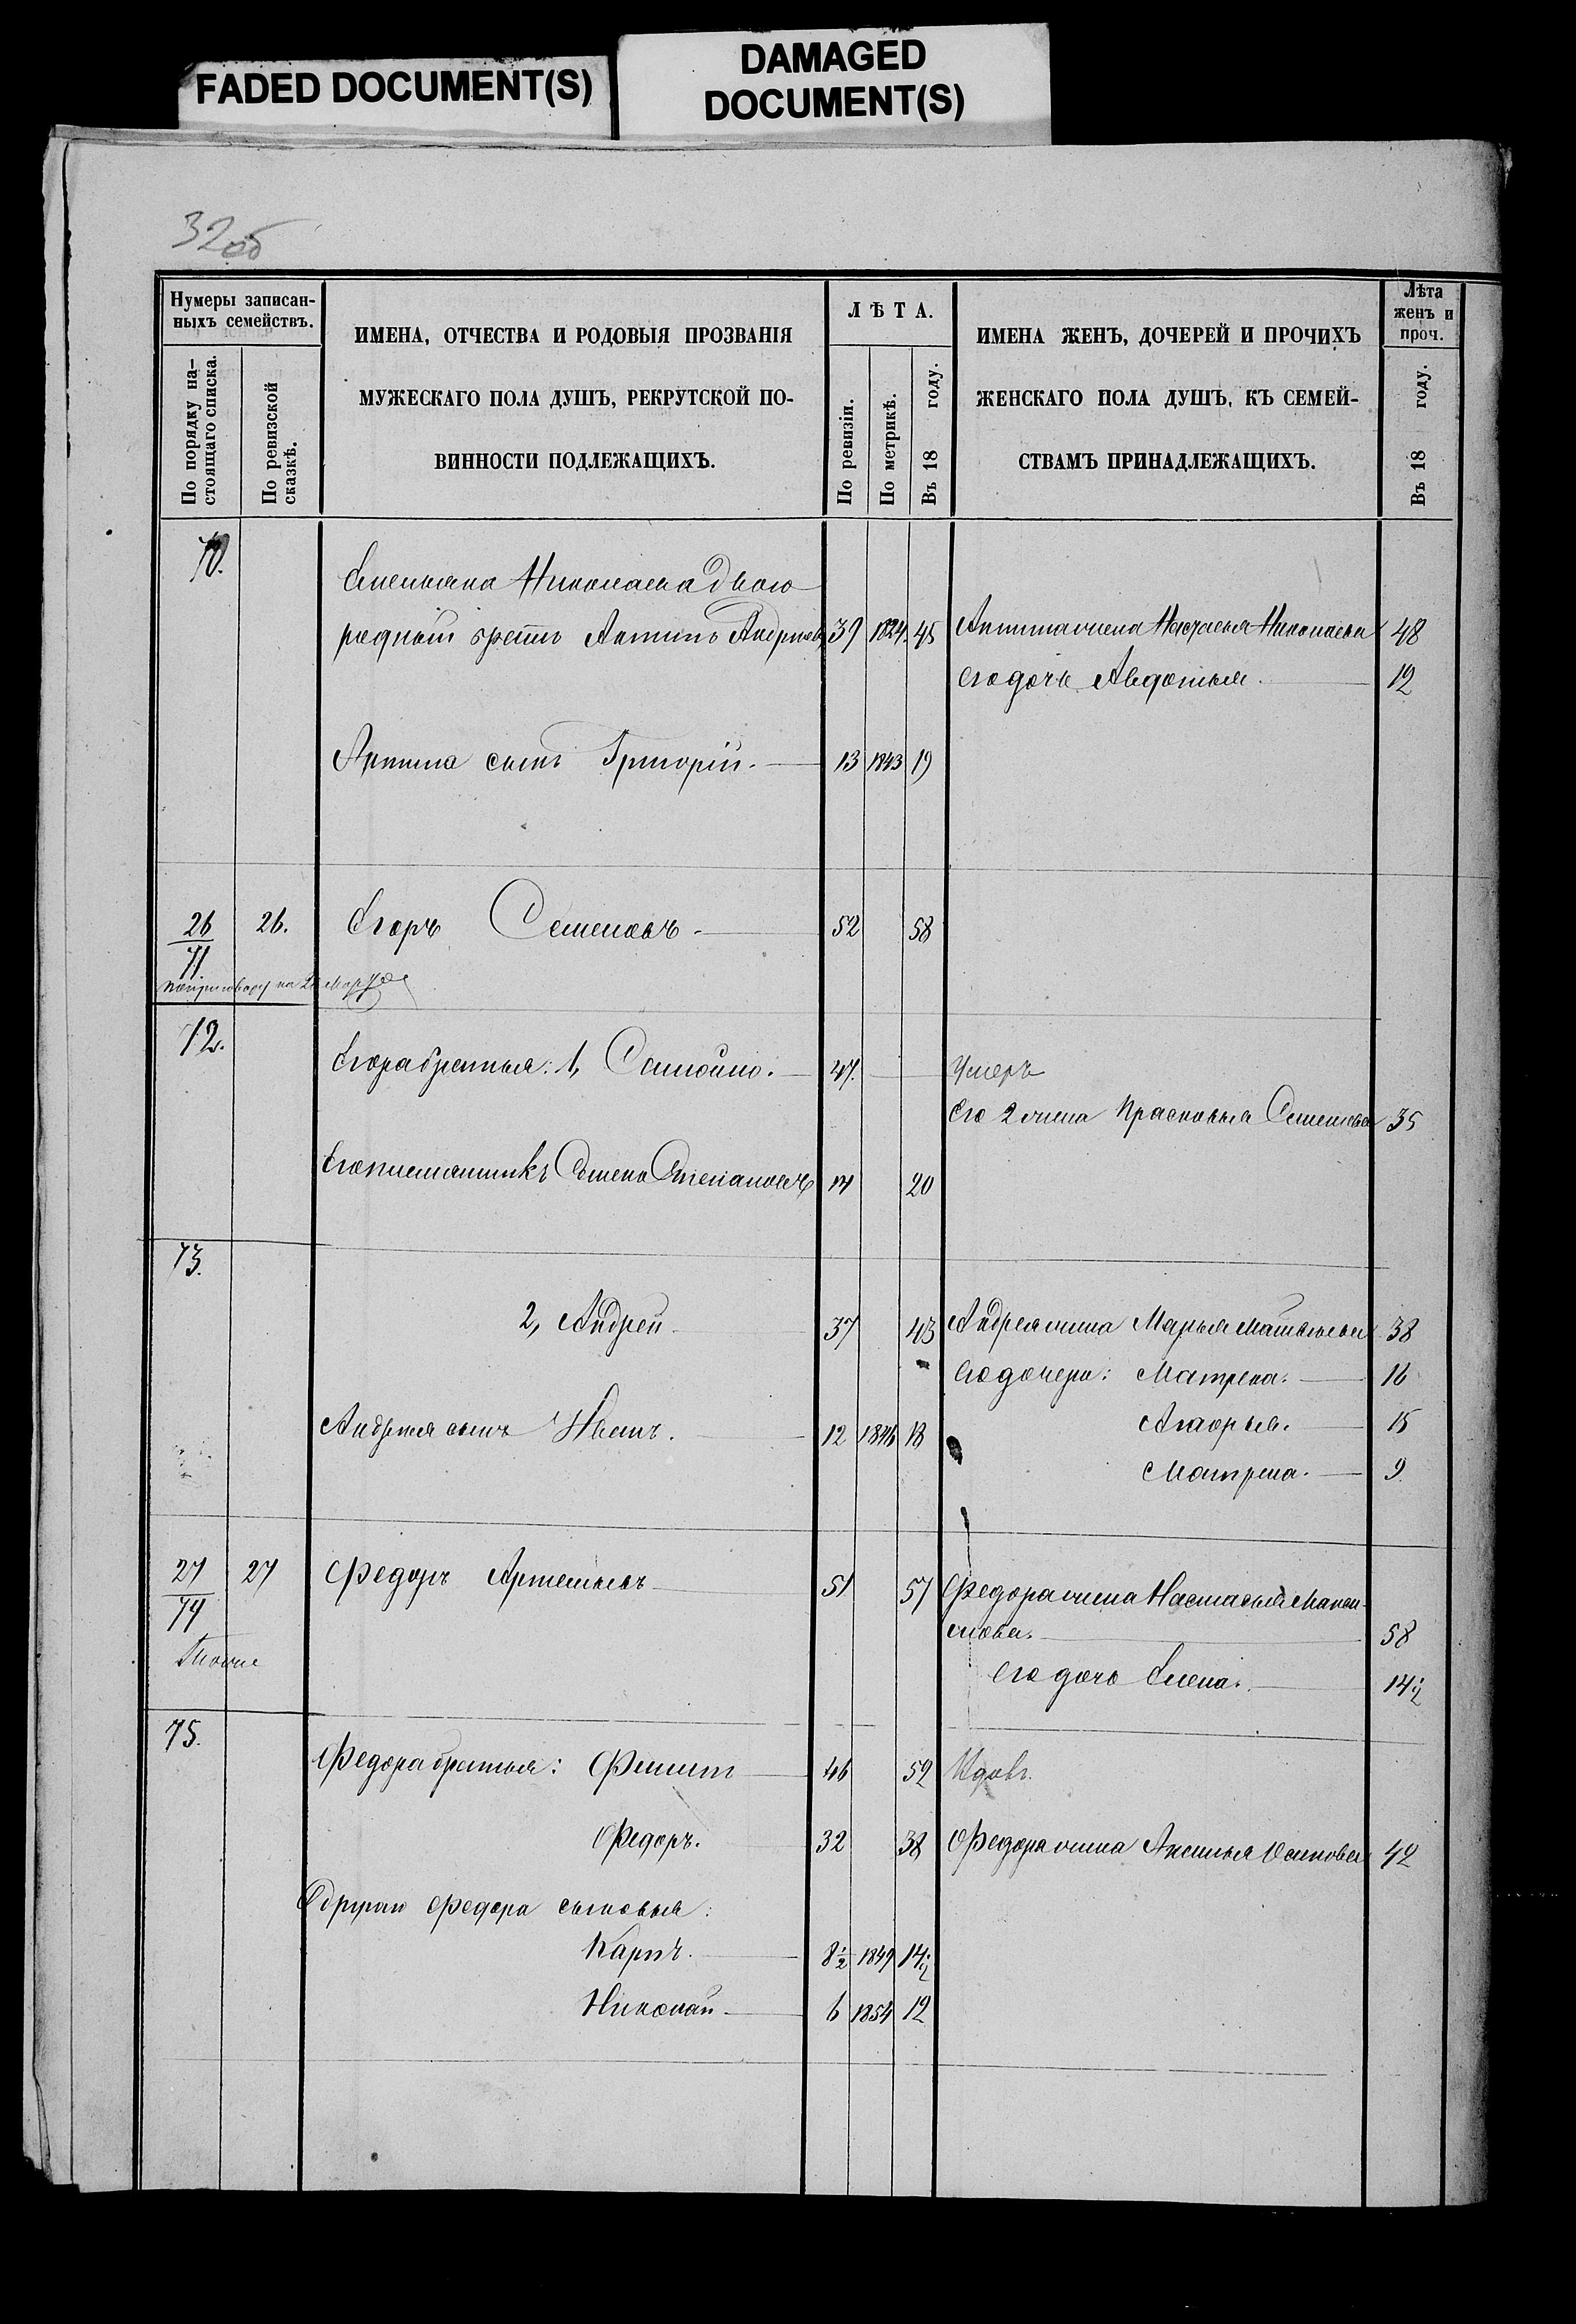 FADED DOCUMENT(S)
DAMAGED
DOCUMENT(S)
32об
Нумеры записан-
ныхъ семействъ.
По порядку на-
стоящаго списка.
По ревизской
сказкѣ.
ИМЕНА, ОТЧЕСТВА И РОДОВЫЯ ПРОЗВАНІЯ
МУЖЕСКАГО ПОЛА ДУШЪ, РЕКРУТСКОЙ ПО-
ВИННОСТИ ПОДЛЕЖАЩИХЪ.
ЛѢТА.
По ревизіи.
По метрикѣ.
Въ 18 году.
ИМЕНА ЖЕНЪ, ДОЧЕРЕЙ И ПРОЧИХЪ
ЖЕНСКАГО ПОЛА ДУШЪ, КЪ СЕМЕЙ-
СТВАМЪ ПРИНАДЛЕЖАЩИХЪ.
Лѣта
женъ и
проч.
Въ 18 году.
70.
Николаева двою
родный братъ Антипъ Андреевъ 39 1824. 45 Антипа жена Николаева 48
его дочь Авдотья. 12
Антипа сынъ Григорій. 13 1843 19
26 26. Егоръ Семеновъ 52 58
71.
72.
Егора братья: 1, Самойло. 47. Умеръ
Его 2 жена Прасковья Семенова 35
Его племянникъ Семенъ Степановъ 14 20
73.
2, Андрей 37 43 Андрея жена Марья Матвеева 38
его дочери: Матрена. 16
Андрея сынъ Иванъ. 12 1846 18 15
Матрена. 9
27 27 Федоръ Артемьевъ 51 57 Федора жена Настасья
58
74
Тоже
его дочь Елена. 14½
75.
Федора братья: Филипъ 46 52 Вдовъ.
Федоръ. 32 38 Федора жена Аксинья Осипова 42
Федора сыновья:
Карпъ. 8½ 1849 14½
Николай 6 1854 12